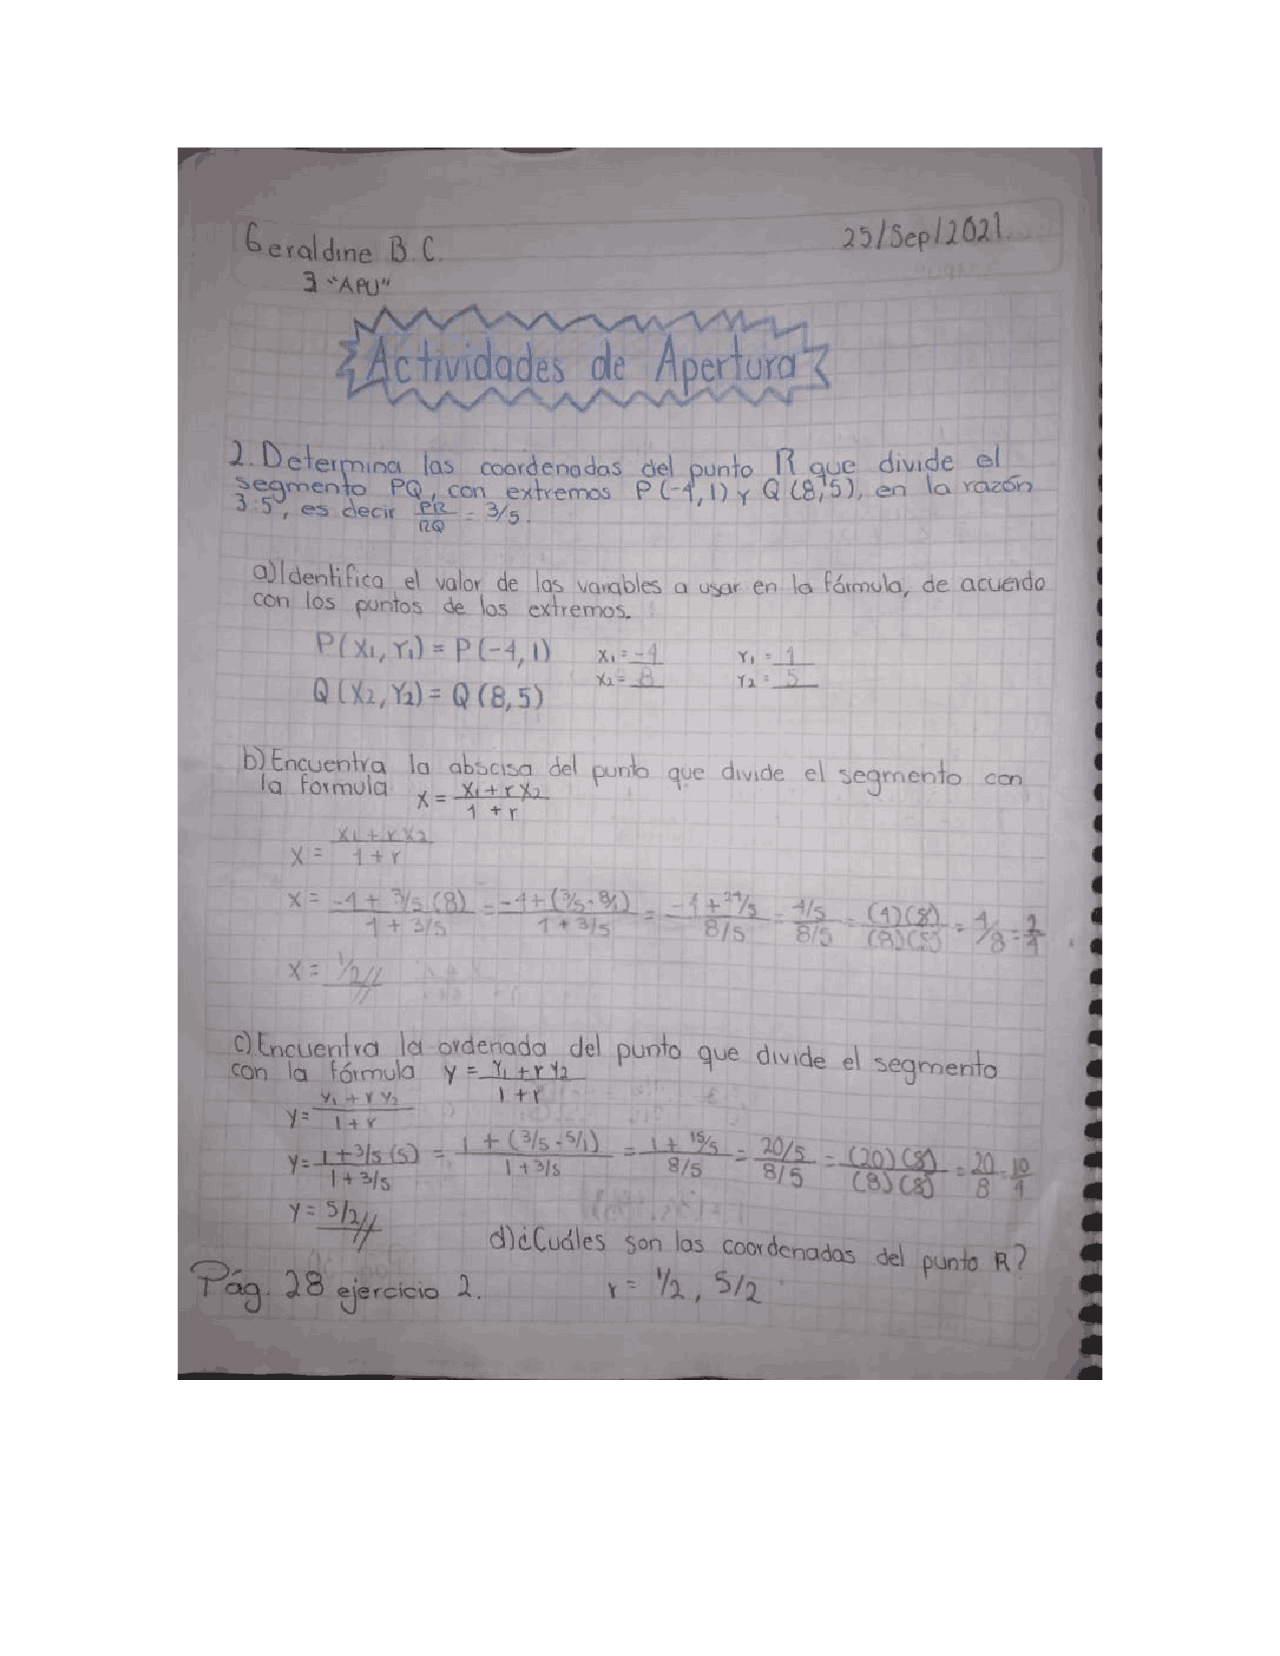 Geraldine B. C. 25/Sep/2021
3 "APU"
Actividades de Apertura
2. Determina las coordenadas del punto R que divide el
segmento PQ, con extremos P (-4, 1) y Q (8, 5), en la razón
3:5, es decir PR/RQ = 3/5.
a) Identifica el valor de las variables a usar en la fórmula, de acuerdo
con los puntos de los extremos.
P(X₁, Y₁) = P(-4, 1) X₁ = -4 Y₁ = 1
X₂ = 8 Y₂ = 5
Q (X₂, Y₂) = Q (8, 5)
b) Encuentra la abscisa del punto que divide el segmento con
la formula X = X₁ + r X₂ / 1 + r
X = X₁ + r X₂ / 1 + r
X = -4 + 3/5 (8) / 1 + 3/5 = -4 + (3/5 · 8/1) / 1 + 3/5 = -4 + 24/5 / 8/5 = 4/5 / 8/5 = (4)(8) / (8)(5) = 4/8 = 2/4
X = 1/2 //
c) Encuentra la ordenada del punto que divide el segmento
con la fórmula y = Y₁ + r Y₂ / 1 + r
y = Y₁ + r Y₂ / 1 + r
y = 1 + 3/5 (5) / 1 + 3/5 = 1 + (3/5 · 5/1) / 1 + 3/5 = 1 + 15/5 / 8/5 = 20/5 / 8/5 = (20)(8) / (8)(8) = 20/8 = 10/4
y = 5/2 //
d) ¿Cuáles son las coordenadas del punto R?
Pág. 28 ejercicio 2. r = 1/2, 5/2